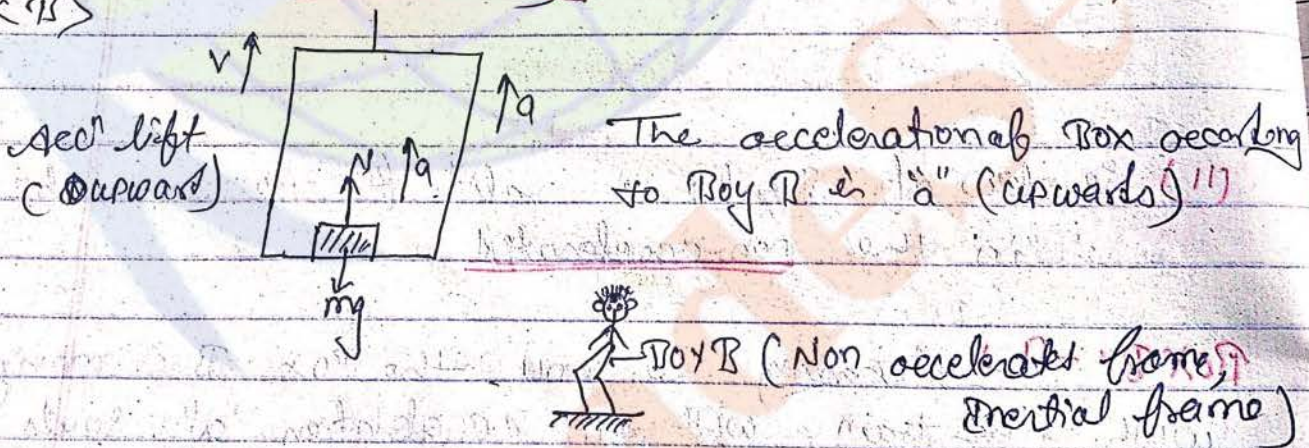 <B>
V
a
Accⁿ lift
(upward)
N
a
The acceleration of Box according
to Boy B is "a" (upwards)
mg
BOY B (Non accelerated frame,
Inertial frame)